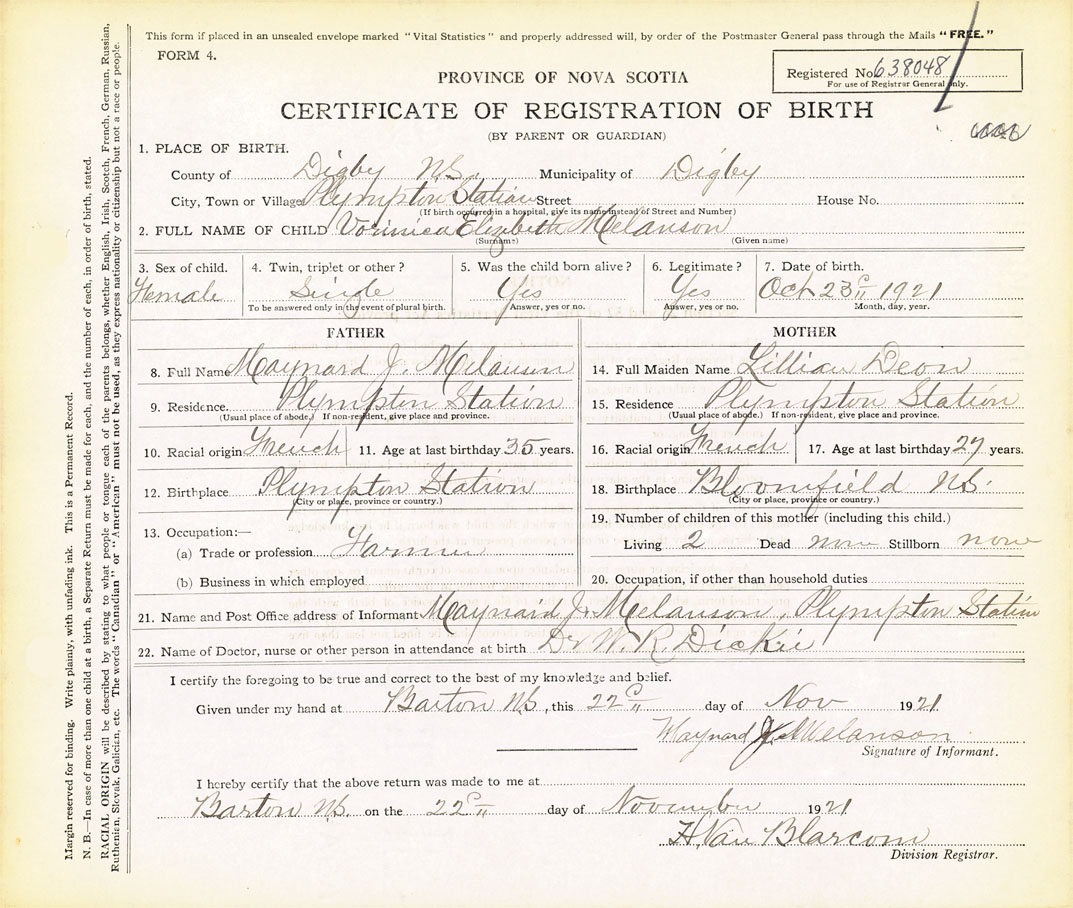 This form if placed in an unsealed envelope marked "Vital Statistics" and properly addressed will, by order of the Postmaster General pass through the Mails "FREE."
FORM 4.
Registered No. 638048
For use of Registrar General only.
PROVINCE OF NOVA SCOTIA
CERTIFICATE OF REGISTRATION OF BIRTH
(BY PARENT OR GUARDIAN)
1. PLACE OF BIRTH.
County of Digby N.S. Municipality of Digby
City, Town or Village Plympton Station Street House No.
(If birth occurred in a hospital, give its name instead of Street and Number)
2. FULL NAME OF CHILD Vorinica Elizabeth Melanson
(Surname) (Given name)
3. Sex of child. 4. Twin, triplet or other? 5. Was the child born alive? 6. Legitimate? 7. Date of birth.
Female Single Yes Yes Oct 23 1921
To be answered only in the event of plural birth. Answer, yes or no. Answer, yes or no. Month, day, year.
FATHER
8. Full Name Maynard J. Melanson
9. Residence Plympton Station
(Usual place of abode.) If non-resident, give place and province.
10. Racial origin French 11. Age at last birthday 35 years.
12. Birthplace Plympton Station
(City or place, province or country.)
13. Occupation:—
(a) Trade or profession Farmer
(b) Business in which employed
MOTHER
14. Full Maiden Name Lillian Deon
15. Residence Plympton Station
(Usual place of abode.) If non-resident, give place and province.
16. Racial origin French 17. Age at last birthday 27 years.
18. Birthplace Bloomfield N.S.
(City or place, province or country.)
19. Number of children of this mother (including this child.)
Living 2 Dead none Stillborn none
20. Occupation, if other than household duties
21. Name and Post Office address of Informant Maynard J. Melanson, Plympton Station
22. Name of Doctor, nurse or other person in attendance at birth Dr W. R. Dickie
I certify the foregoing to be true and correct to the best of my knowledge and belief.
Given under my hand at Barton N.S., this 22 day of Nov 1921
Maynard J Melanson
Signature of Informant.
I hereby certify that the above return was made to me at
Barton N.S. on the 22 day of November 1921
H. Van Blarcom
Division Registrar.
Margin reserved for binding. Write plainly, with unfading ink. This is a Permanent Record.
N. B.—In case of more than one child at a birth, a Separate Return must be made for each, and the number of each, in order of birth, stated.
RACIAL ORIGIN will be described by stating to what people or tongue each of the parents belongs, whether English, Irish, Scotch, French, German, Russian,
Ruthenian, Slovak, Galician, etc. The words "Canadian" or "American" must not be used, as they express nationality or citizenship but not a race or people.